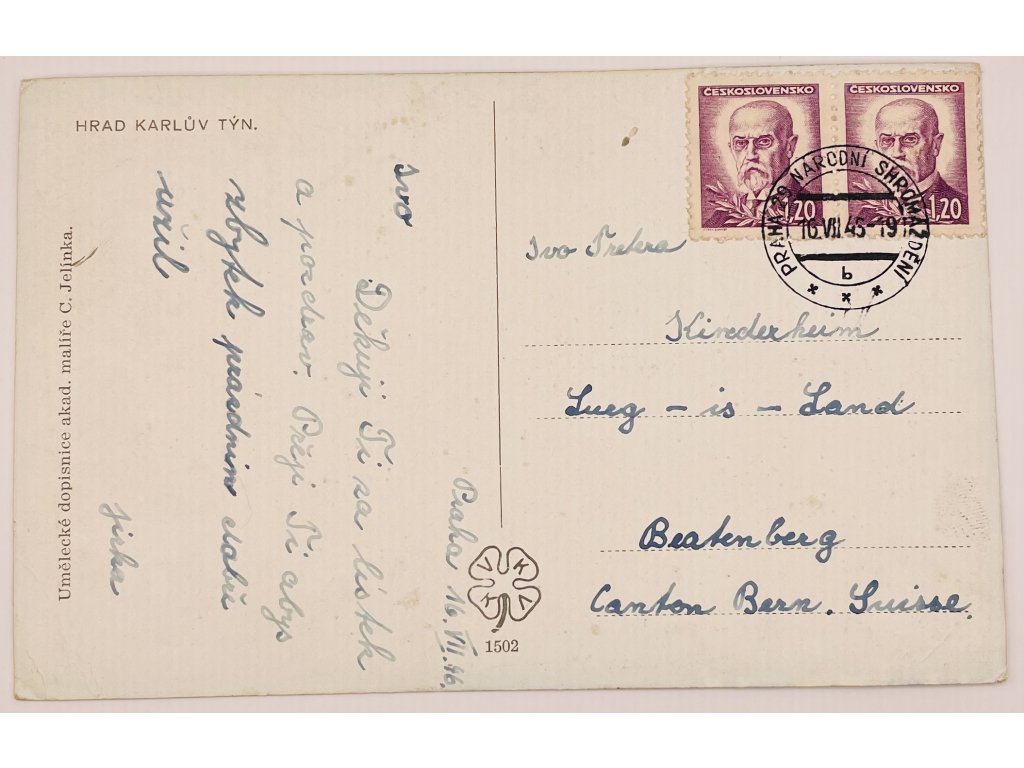 HRAD KARLŮV TÝN.
Umělecké dopisnice akad. malíře C. Jelínka.
Praha 16.VII.46.
Ivo
Děkuji Ti za lístek
a pozdrav. Přeji Ti abys
zbytek prázdnin dobře
užil
Jirka
1502
ČESKOSLOVENSKO
1,20
ČESKOSLOVENSKO
1,20
PRAHA 29 NÁRODNÍ SHROMÁŽDĚNÍ
16.VII 46-19
b
Ivo
Kinderheim
Lueg - is - Land
Beatenberg
Canton Bern. Suisse.